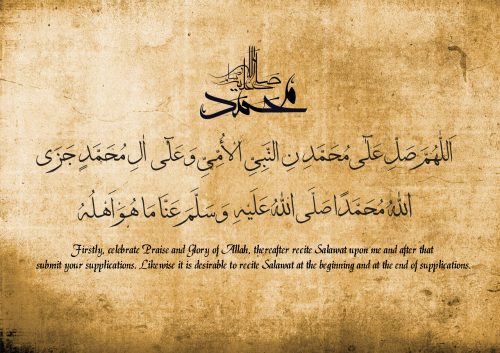 محمد صلى الله عليه وسلم
اَللّٰهُمَّ صَلِّ عَلٰٓى مُحَمَّدِ نِ النَّبِيِّ الْاُمِّيِّ وَعَلٰٓى اٰلِ مُحَمَّدٍ جَزَى
اللهُ مُحَمَّدًا صَلَّى اللهُ عَلَيْهِ وَسَلَّمَ عَنَّا مَا هُوَ اَهْلُهُ
Firstly, celebrate Praise and Glory of Allah, thereafter recite Salawat upon me and after that
submit your supplications. Likewise it is desirable to recite Salawat at the beginning and at the end of supplications.